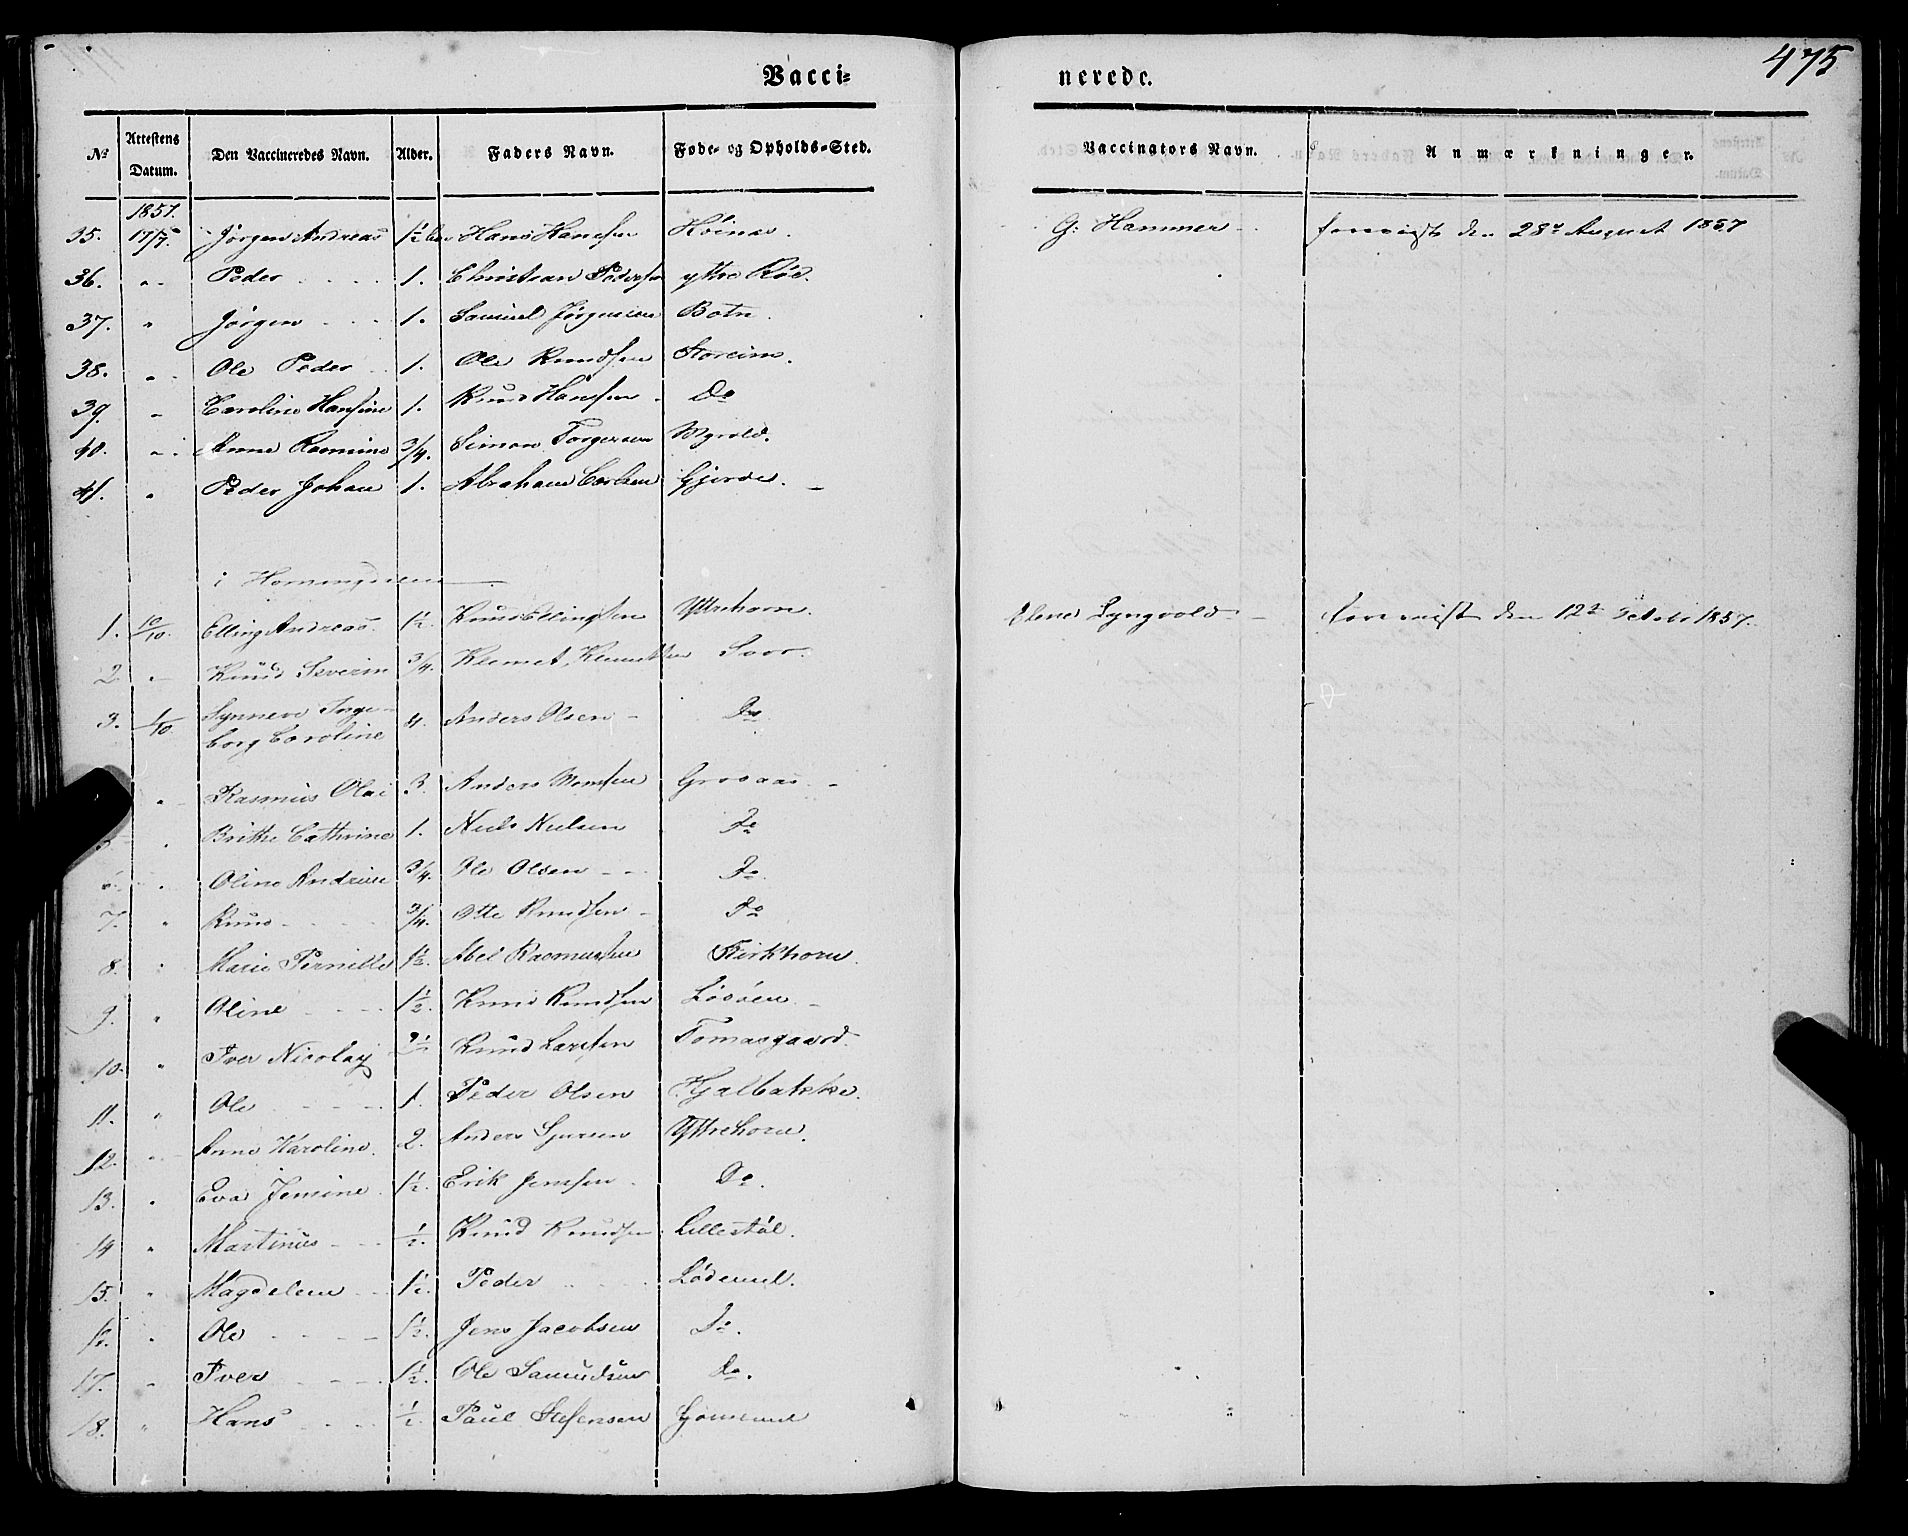 475
Vacci- nerede.
No Attestens Datum. Den Vaccineredes Navn. Alder. Faders Navn. Føde- og Opholds-Sted. Vaccinators Navn. Anmærkninger.
1857.
35. 17/7. Jørgen Andreas 1/2 Hans Hansen Hóinæs. G: Hammer forevist den 28de August 1857
36. " Peder 1. Christian Pedersen ytre Røe.
37. " Jørgen 1. Samuel Jørgensen Botn.
38. " Ole Peder 1. Ole Knudsen Storeim.
39. " Caroline Hansine 1. Knud Hansen Do
40. " Anne Rasmine 3/4. Simon Torgersen Myrold.
41. " Peder Johan 1. Abraham Carlsen Gjerde.
i Horningdalen
1. 10/10. Elling Andreas. 1/2. Knud Ellingsen Yttrehorn. Lyngvold forevist den 12te Octobr 1857.
2. " Knud Severin 3/4. Klemet Klemetsen
3. 1/10 Synneve Inge-
borg Caroline 4. Anders Olsen Do
" Rasmus Olai 3. Anders Monsen Grodaas
5 " Brithe Cathrine 1. Niels Nielsen Do
6. " Oline Andrine 3/4. Ole Olsen Do.
7. " Knud 3/4. Otte Knudsen Do
8. " Marie Pernille 1/2. Abel Rasmussen Kirkhorn.
9. " Oline 1/2. Knud Knudsen
10. " Iver Nicolay Knud Larssen Tomasgaard.
11. " Ole 1. Peder Olsen Hjalbakke.
12. " Anne Karoline. 2. Anders Sjursen Yttrehorn.
13. " Eva Jensine 1/2. Erik Jensen Do.
14 " Martinus 1/2. Knud Knudsen Lillestøl.
15. " Magdelene 1/2. Peder Lødemel.
16. " Ole 1/2. Jens Jacobsen Do.
17. " Iver 1/2. Ole Samuelsen Do.
18. " Hans 1/2. Paul Stefensen